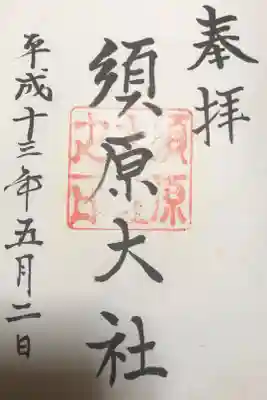 奉拝
須原大社
平成十三年五月二日